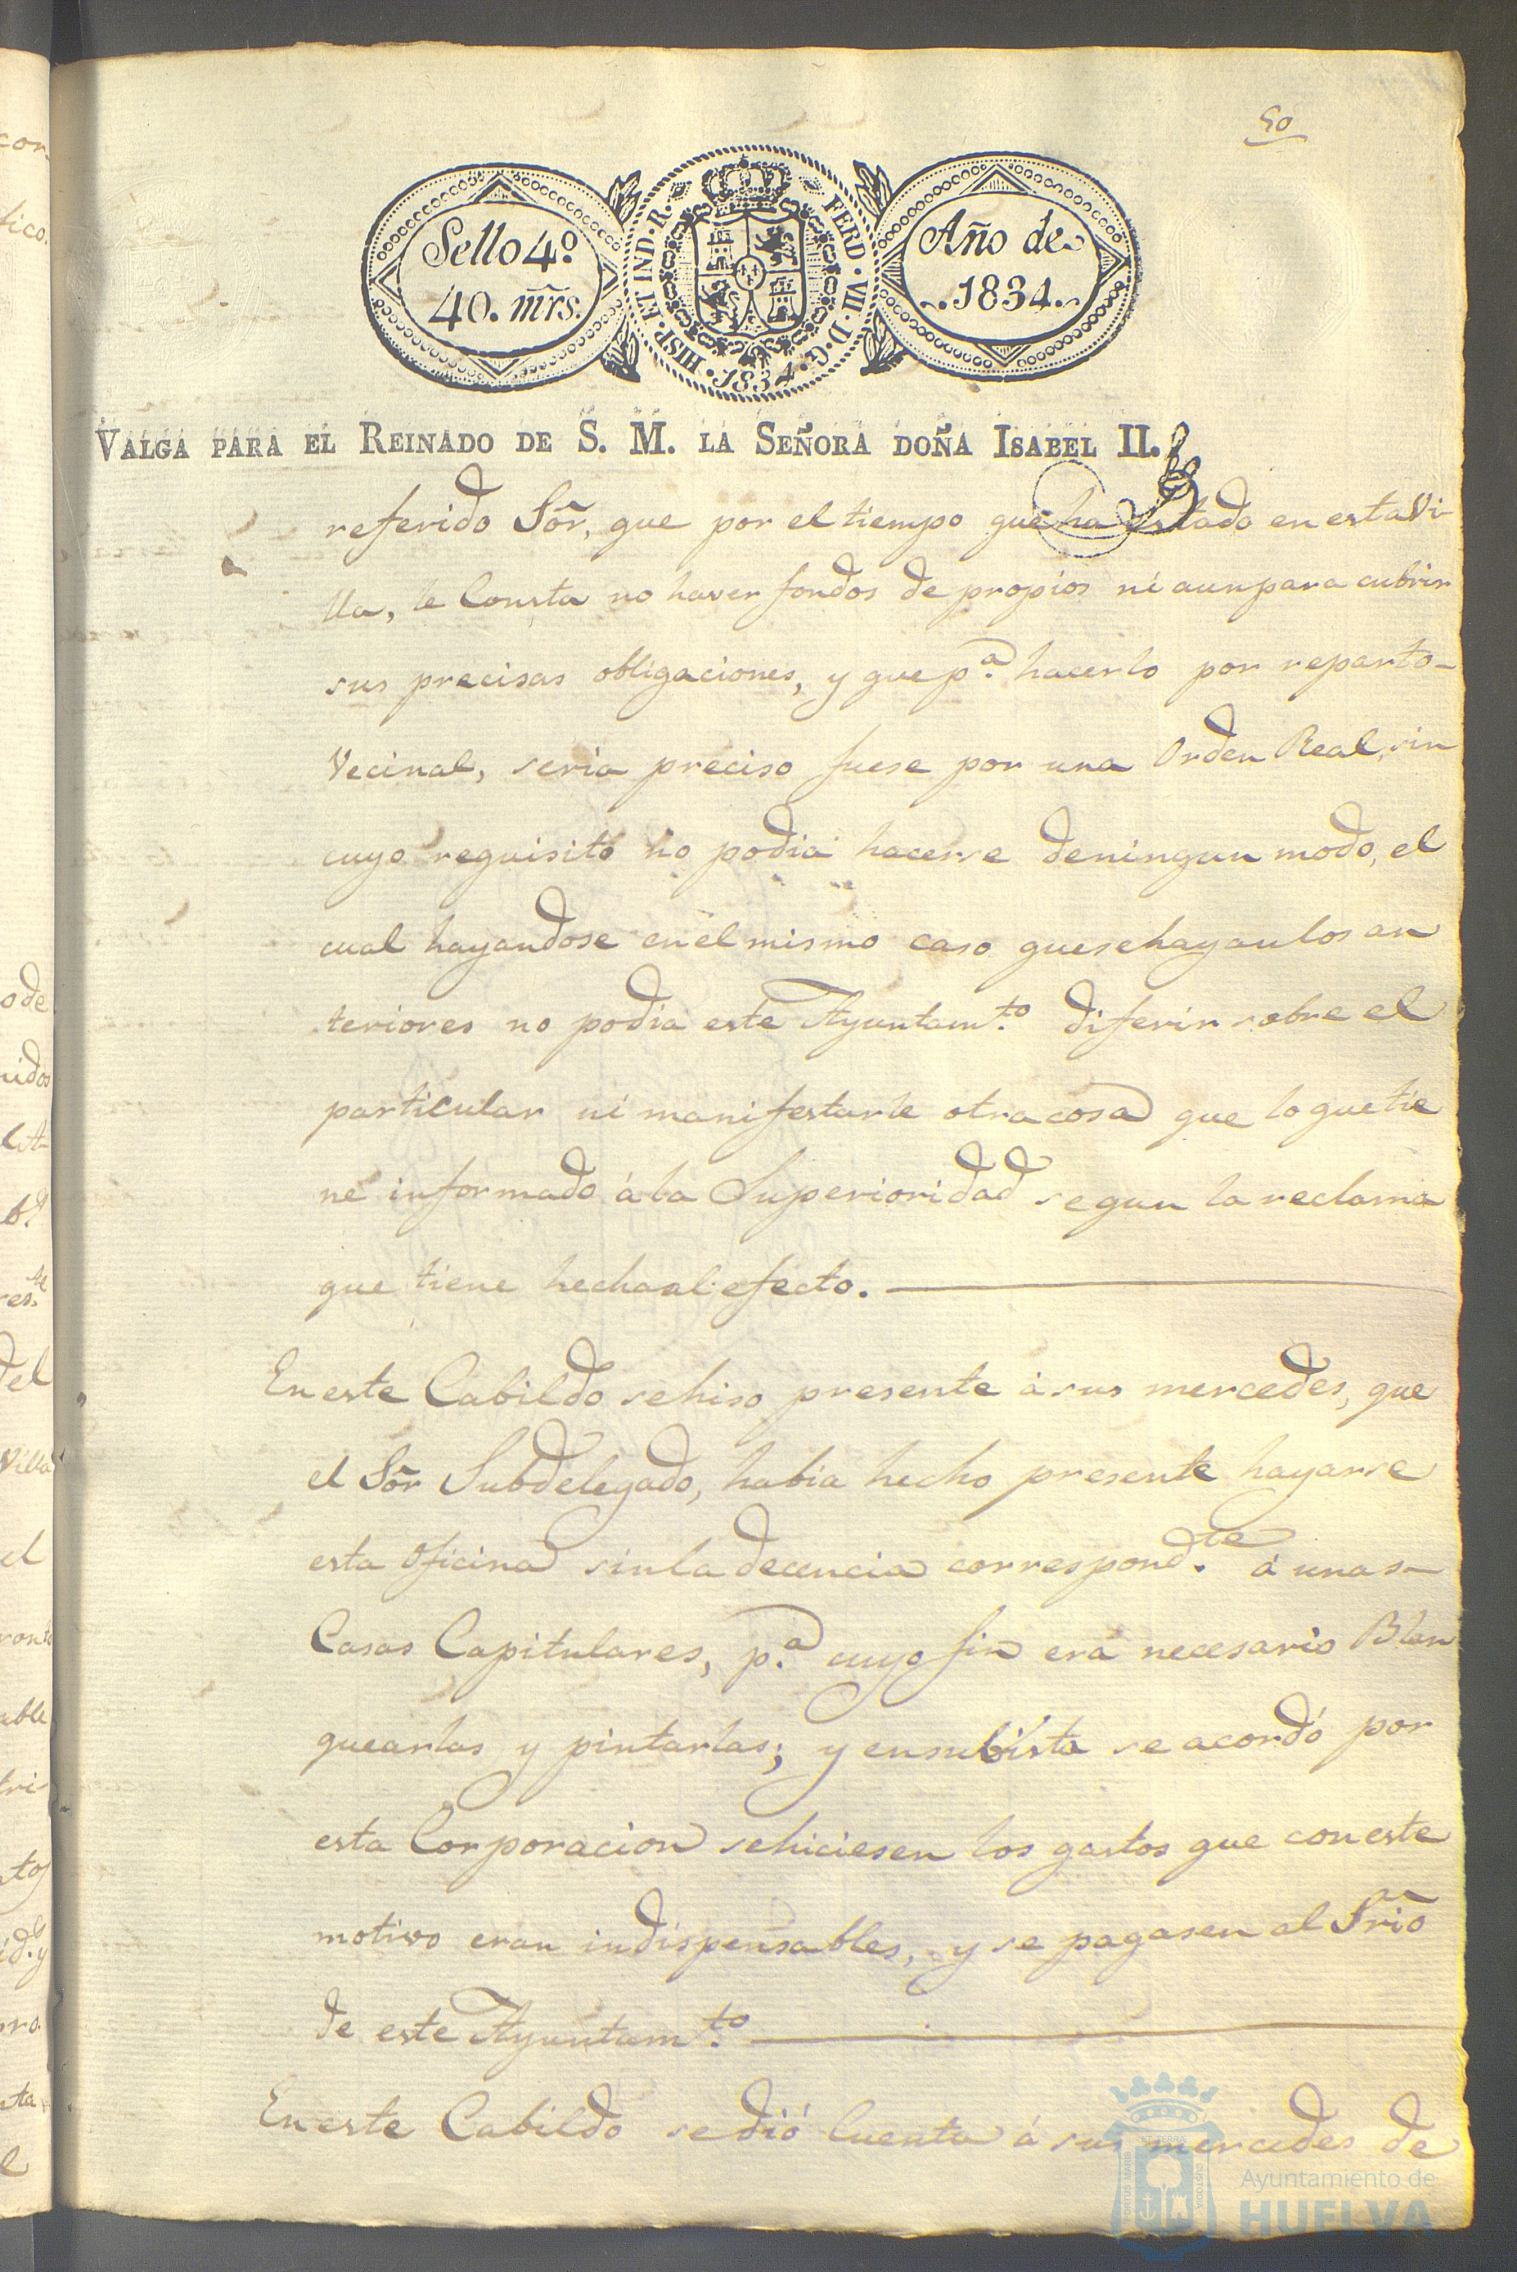 50
Sello 4º
40. mrs.
HISP. ET IND. R. FERD. VII. D. G. 1834.
Año de
1834.
VALGA PARA EL REINADO DE S. M. LA SEÑORA DOÑA ISABEL II.
referido Sõr, que por el tiempo que ha estado en esta Vi
lla, le Consta no haver fondos de propios ni aun para cubrir
sus precisas obligaciones, y que pª. hacerlo por reparto
Vecinal, seria preciso fuese por una Orden Real, sin
cuyo requisito no podia hacerse de ningun modo, el
cual hayandose en el mismo caso que se hayan los an
teriores no podia este Ayuntamto. diferir sobre el
particular ni manifestarle otra cosa que lo que tie
ne informado á la Superioridad segun la reclama
que tiene hecha al efecto.
En este Cabildo se hiso presente á sus mercedes, que
el Sõr Subdelegado, habia hecho presente hayarse
esta Oficina sin la decencia correspondte. á unas
Casas Capitulares, pª. cuyo fin era necesario Blan
quearlas y pintarlas; y en su bista se acordó por
esta Corporacion se hiciesen los gastos que con este
motivo eran indispensables, y se pagasen al Srio
de este Ayuntamto.
En este Cabildo se dió Cuenta á sus mercedes de
Ayuntamiento de
HUELVA